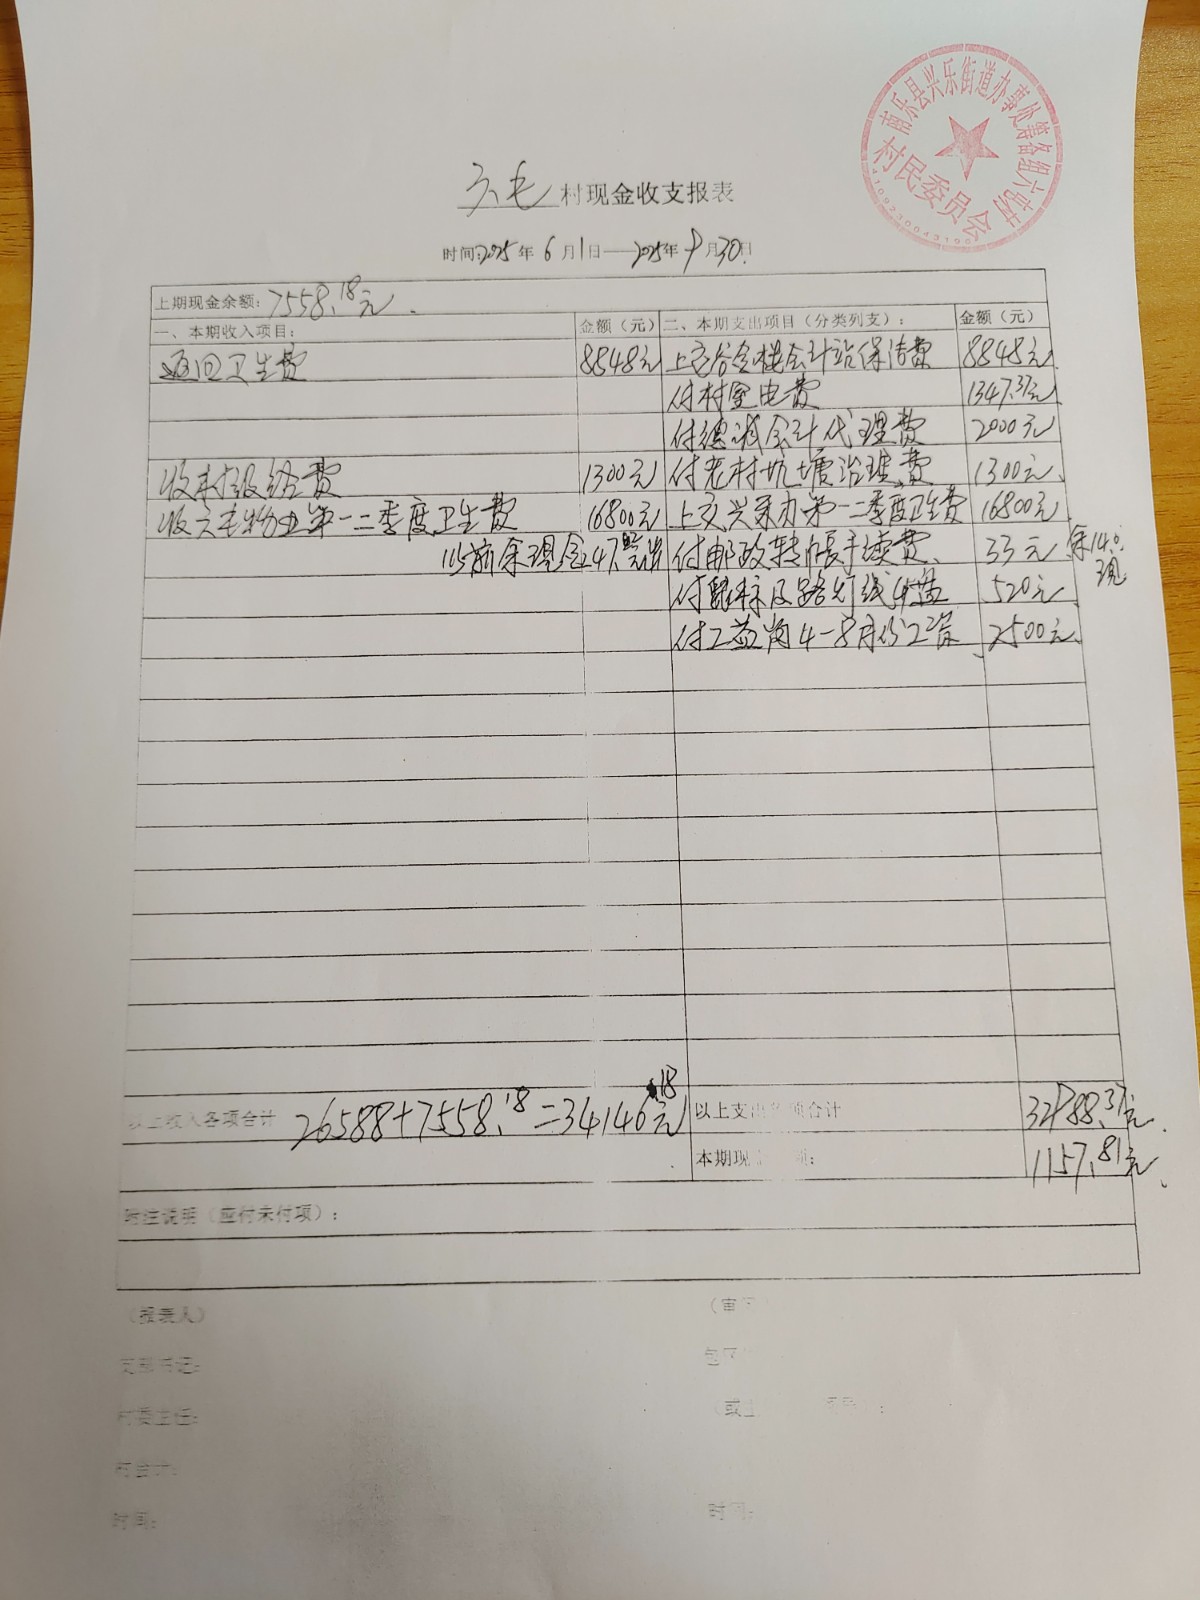 南乐县兴乐街道办事处筹备组六屯村
村民委员会
六屯村现金收支报表
时间:2025年6月1日——2025年9月30日
上期现金余额:7558.18元.
一、本期收入项目: 金额(元) 二、本期支出项目(分类列支): 金额(元)
返回卫生费 8848元 上交谷金楼会计站保洁费 8848元
付村室电费 1347.37元
付德诚会计代理费 2000元
收村级经费 1300元 付老村坑塘治理费 1300元
收六屯物业第一二季度卫生费 16800元 上交兴乐办第一二季度卫生费 16800元
以前余现金247 付邮政转帐手续费 33元 余14.0.
现
付 及路灯线 520元
付公益岗4-8月份工资 2500元
以上收入各项合计 26588+7558.18=34146.18元 以上支出 项合计 32988.37元
本期现 : 1157.81元
附注说明(应付未付项):
(报表人) (审
支部书记: 包
村委主任: (或
村会计:
时间: 时间: